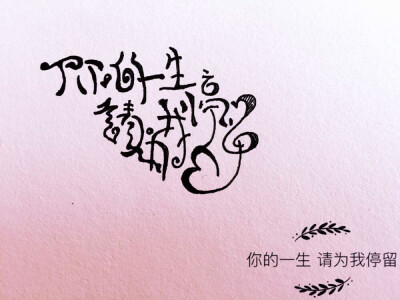 你的一生
請为我停留
你的一生 请为我停留